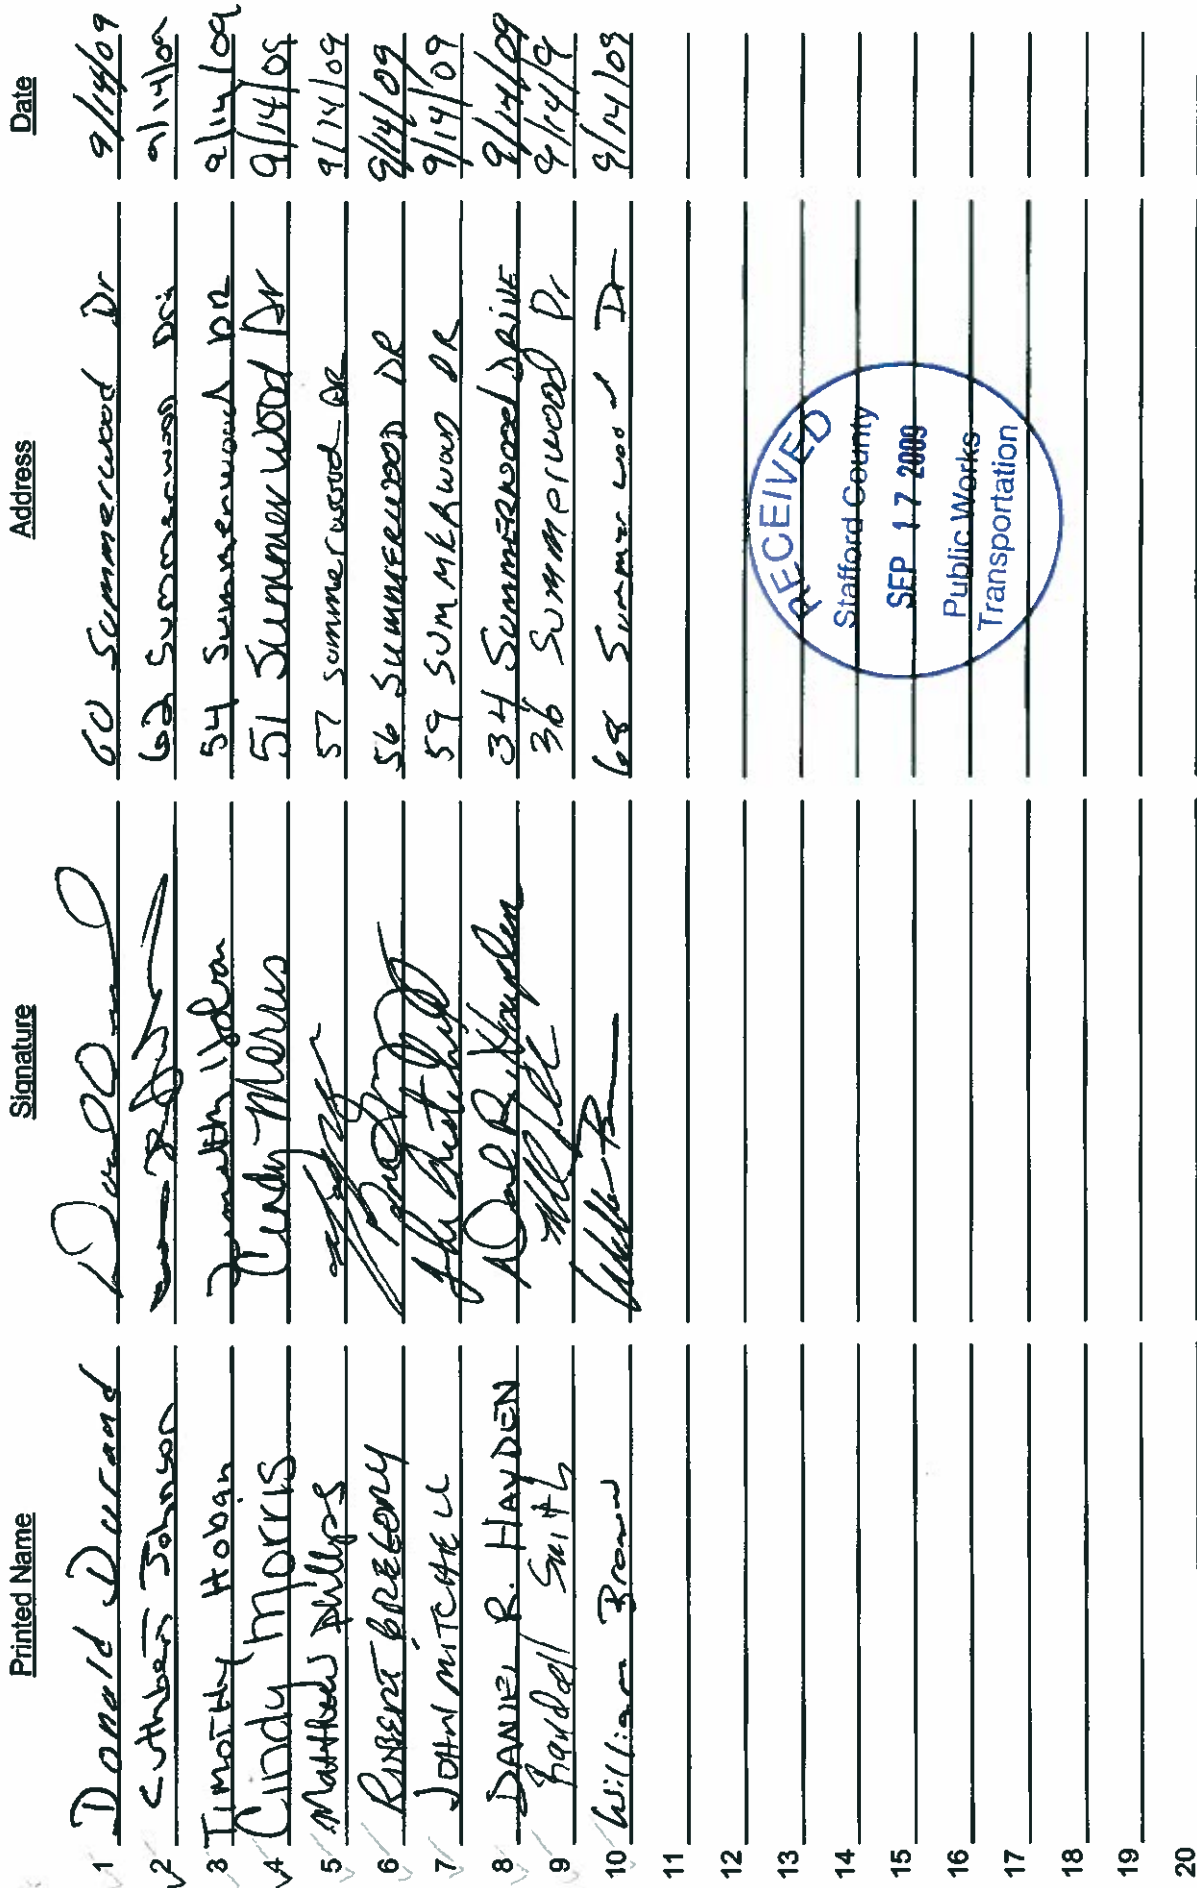 Printed Name Signature Address Date
1 Donald Durand 60 Summerwood Dr 9/14/09
2 Cuthbert Johnson 62 Summerwood 9/14/09
3 Timothy Hoban Timothy Hoban 54 Summerwood DR 9/14/09
4 Cindy Morris Cindy Morris 51 Summerwood Dr 9/14/09
5 Matthew Phillips 57 summerwood DR 9/14/09
6 ROBERT GREGORY 56 SUMMERWOOD DR 9/14/09
7 JOHN MITCHELL 59 SUMMERWOOD DR 9/14/09
8 DANIEL R. HAYDEN Daniel R. Hayden 34 SUMMERWOOD DRIVE 9/14/09
9 Randall Smith 36 Summerwood Dr 9/14/9
10 William Brown 68 Summerwood Dr 9/14/09
11
12
13
14
15
16
17
18
19
20
RECEIVED
Stafford County
SEP 17 2009
Public Works
Transportation